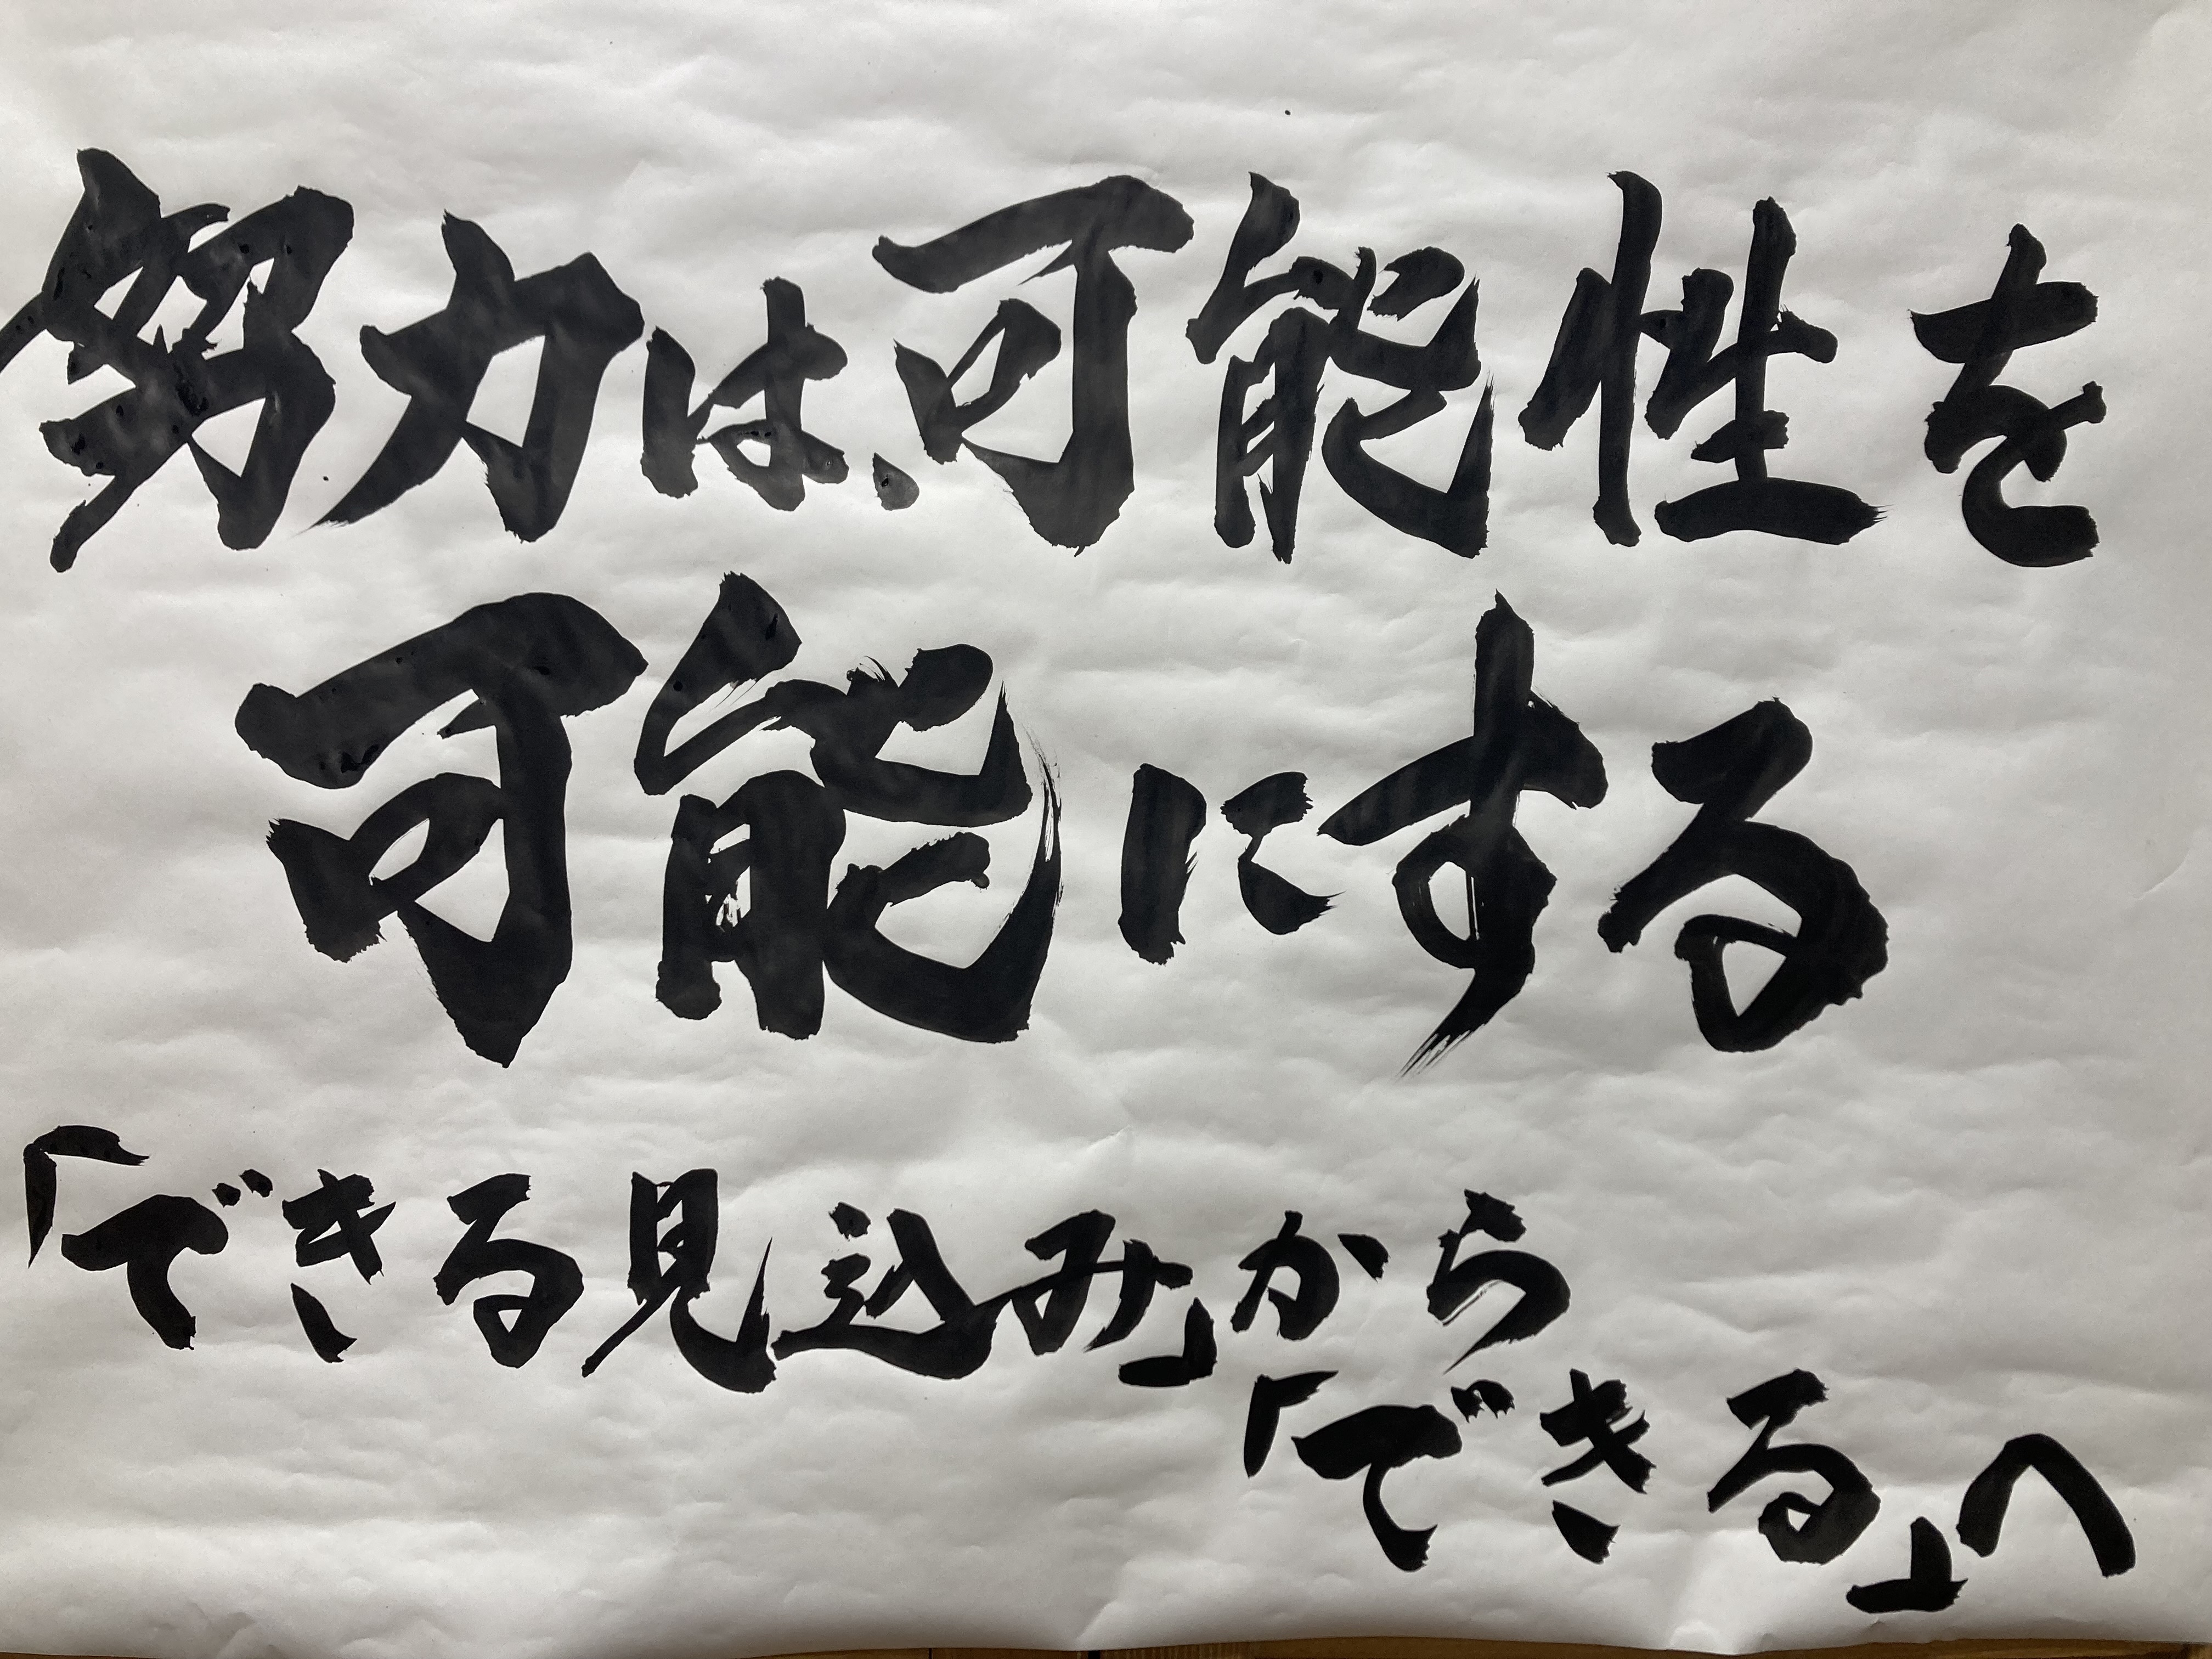 努力は、可能性を
可能にする
「できる見込み」から
「できる」へ